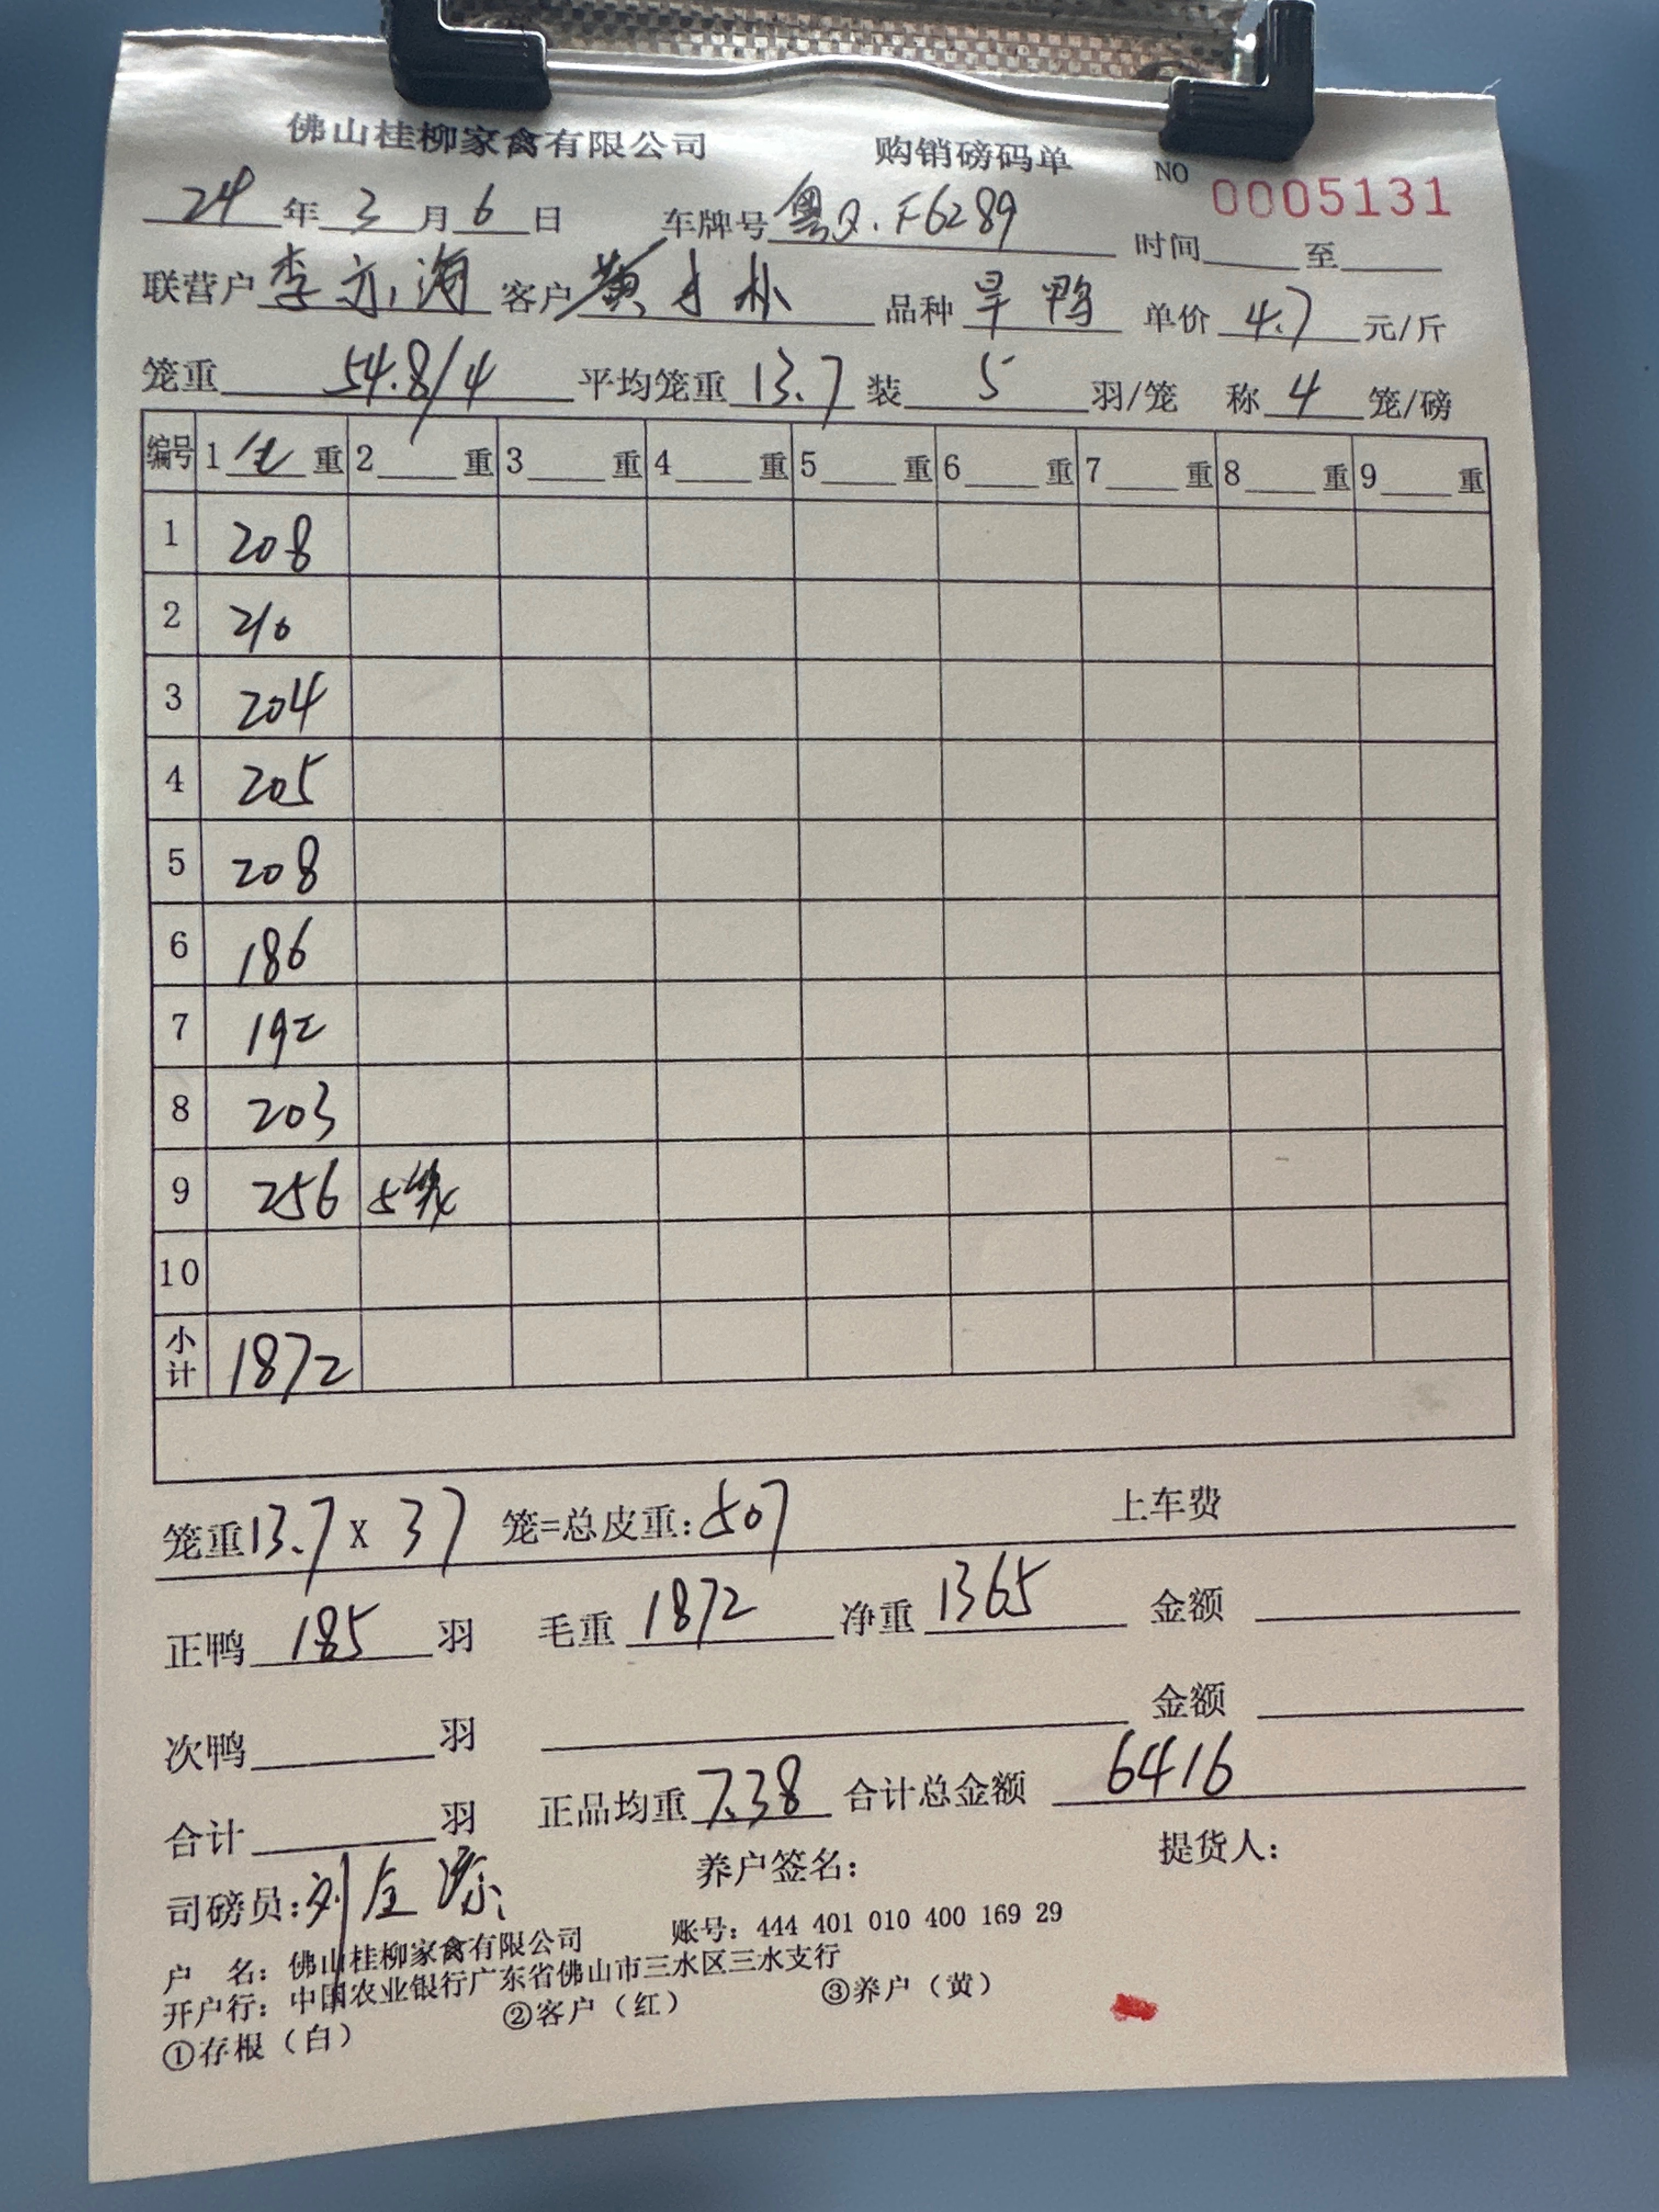 佛山桂柳家禽有限公司 购销磅码单 NO 0005131
24年3月6日 车牌号 粤Q.F6289 时间____至____
联营户 李亦海 客户 黄才朴 品种 旱鸭 单价 4.7 元/斤
笼重 54.8/4 平均笼重 13.7 装 5 羽/笼 称 4 笼/磅
编号 1 重 2 重 3 重 4 重 5 重 6 重 7 重 8 重 9 重
1 208
2 210
3 204
4 205
5 208
6 186
7 192
8 203
9 256 5笼
10
小计 1872
笼重13.7 X 37 笼=总皮重:507 上车费
正鸭 185 羽 毛重 1872 净重 1365 金额
次鸭 羽 金额
合计 羽 正品均重 7.38 合计总金额 6416
司磅员: 刘 养户签名: 提货人:
户 名: 佛山桂柳家禽有限公司 账号: 444 401 010 400 169 29
开户行: 中国农业银行广东省佛山市三水区三水支行
①存根(白) ②客户(红) ③养户(黄)